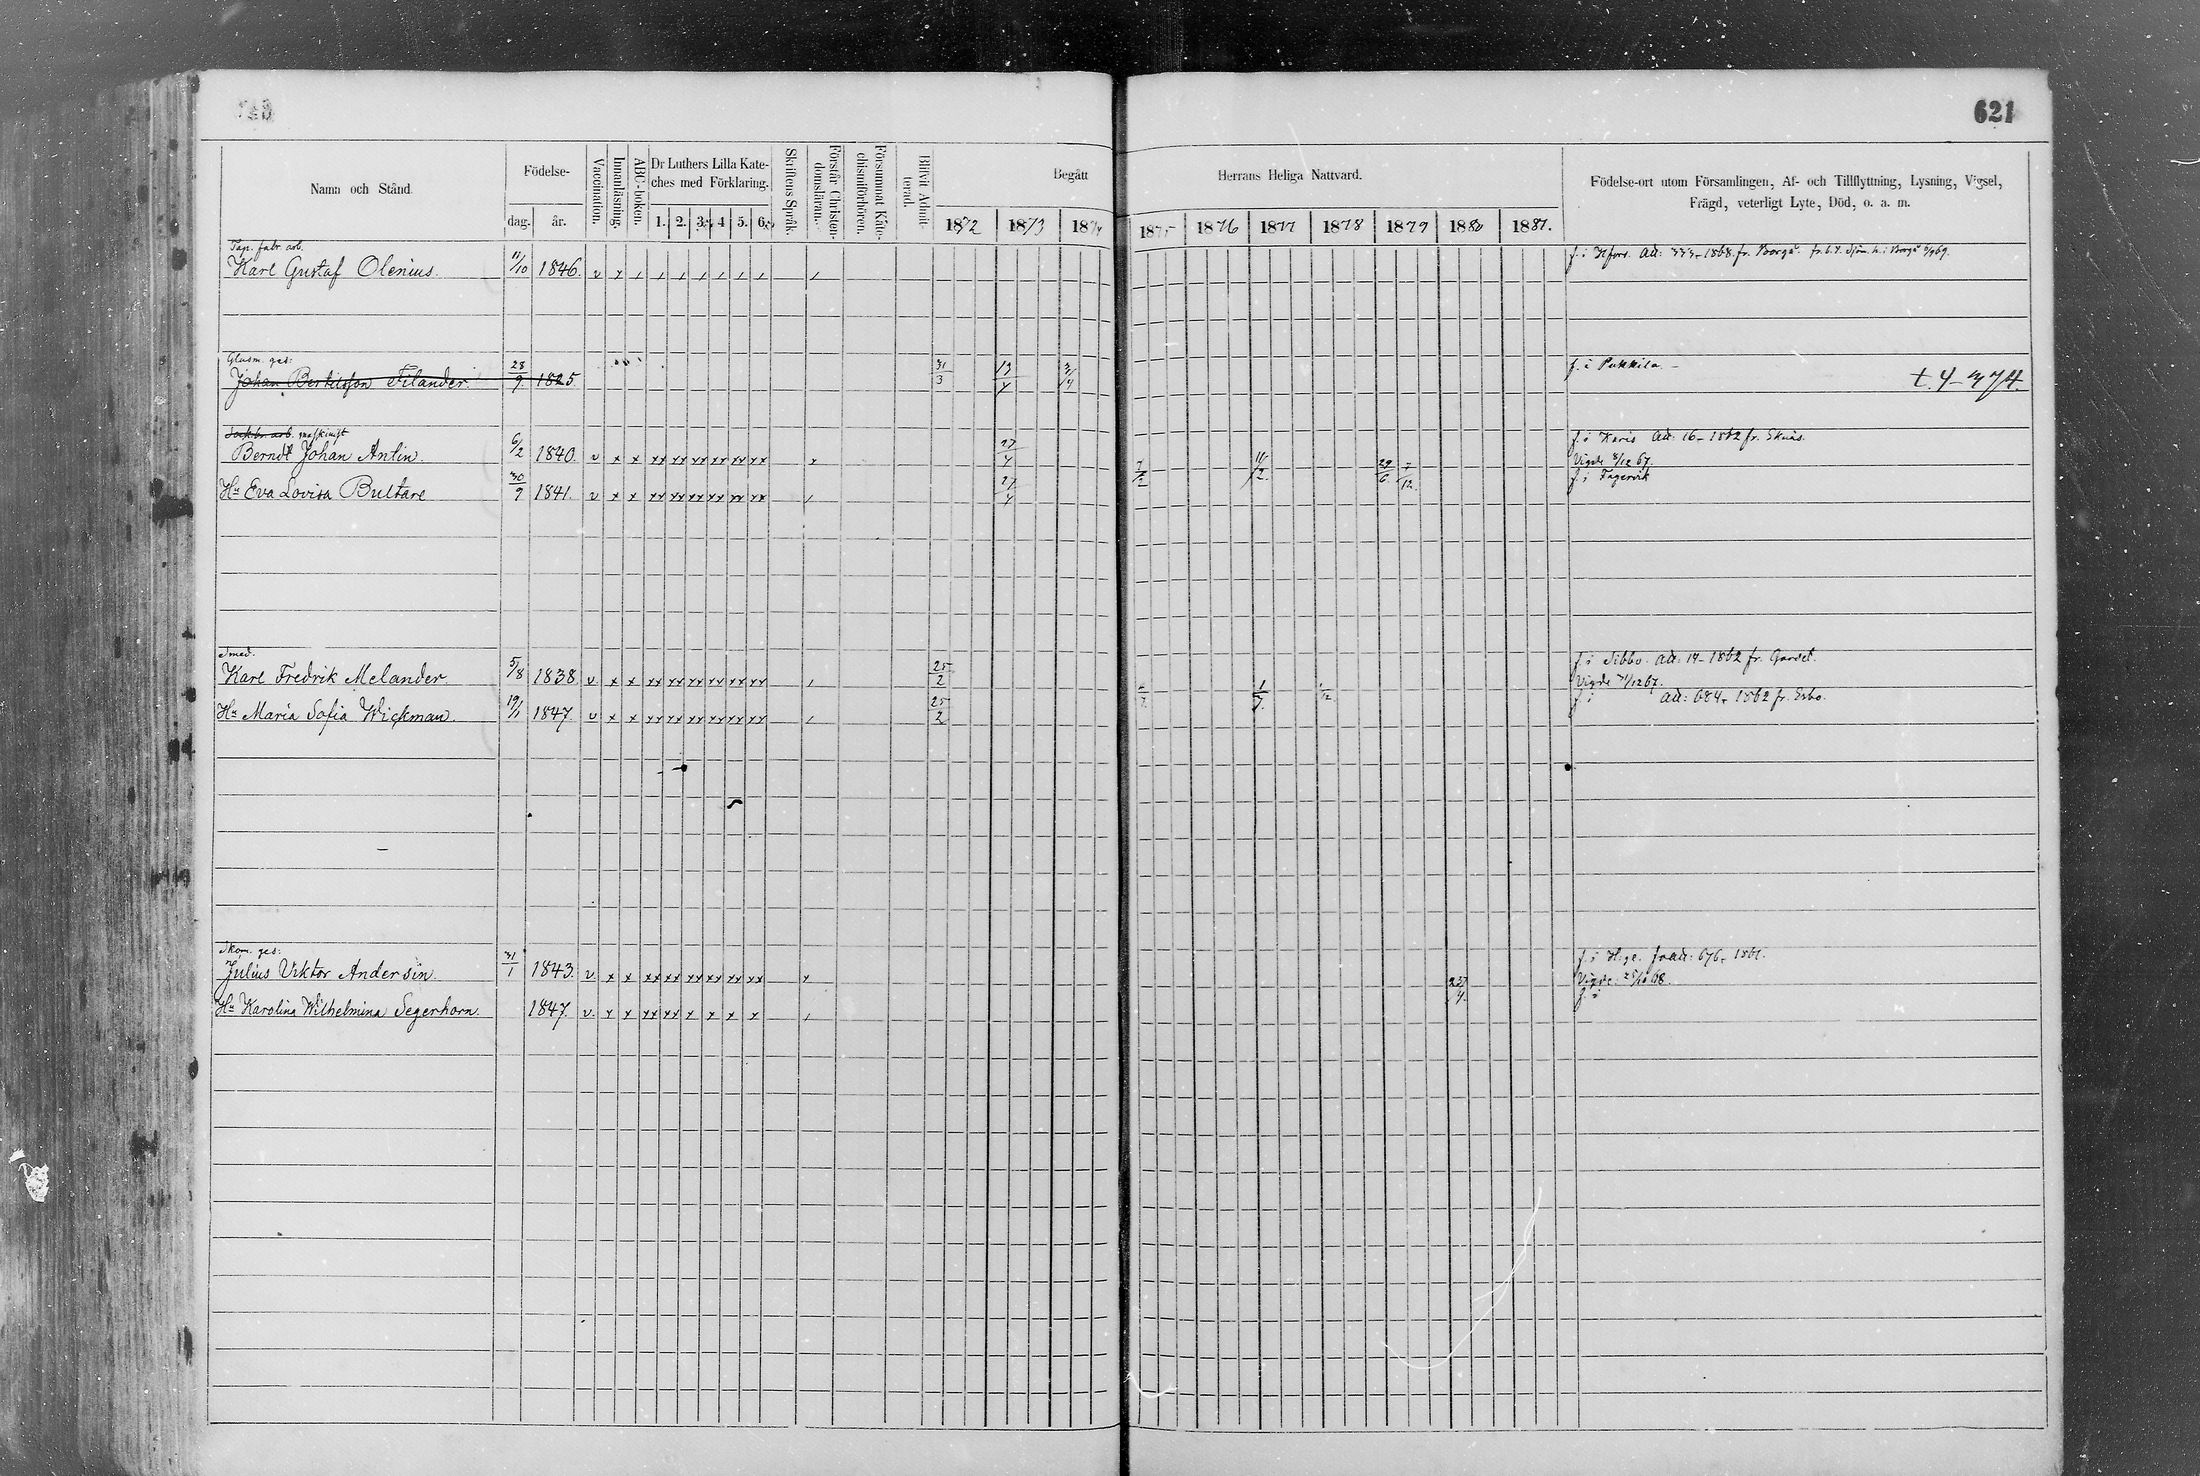 621
Namn och Stånd.
Födelse-
dag.
år.
Vaccination.
Innanläsning.
ABC-boken.
Dr Luthers Lilla Kate-
ches med Förklaring.
1. 2. 3. 4 5. 6.
Skriftens Språk.
Förstår Christen-
domsläran.
Försummat Kate-
chismiförhören.
Blifvit Admit-
terad.
Begått
Herrans Heliga Nattvard.
1872 1873 1874 1875 1876 1877 1878 1879 1880 1881.
Födelse-ort utom Församlingen, Af- och Tillflyttning, Lysning, Vigsel,
Frägd, veterligt Lyte, Död, o. a. m.
Tap. fabr. arb.
Karl Gustaf Olenius. 11/10 1846. f. i Hfors. Att: 333-1868. fr. Borgå.
Glasm. ges:
Johan Bertilsson Filander 28/9 1825. 31/3 13/4 f. i Pukkila. – t. 4-374.
maskinist
Berndt Johan Antin. 6/2 1840. v x x xx xx xx xx xx xx 27/4 f. i Karis Att: 16-1862 fr. Eknäs.
Vigde 8/12 67.
Hu Eva Lovisa Bultare 30/9 1841. v x x xx xx xx xx xx xx 27/4 11/2. 29/6 7/12. f. i Fagervik
Smed.
Karl Fredrik Melander. 5/8 1838. v x x xx xx xx xx xx xx 25/2 f. i Sibbo. Att: 14-1862 fr. Gardet.
Vigde 31/12 67.
Hu Maria Sofia Wickman. 19/1 1847. v x x xx xx xx xx xx xx 25/2 1/7. f. i Att: 684-1862 fr. Esbo.
Skom. ges:
Julius Viktor Andersin. 31/1 1843. v x x xx xx xx xx xx xx f. i H:ge. Att: 676-1861.
Vigde: 25/10 68.
Hu Karolina Wilhelmina Segerhorn. 1847. v x x xx xx x x x x f. i